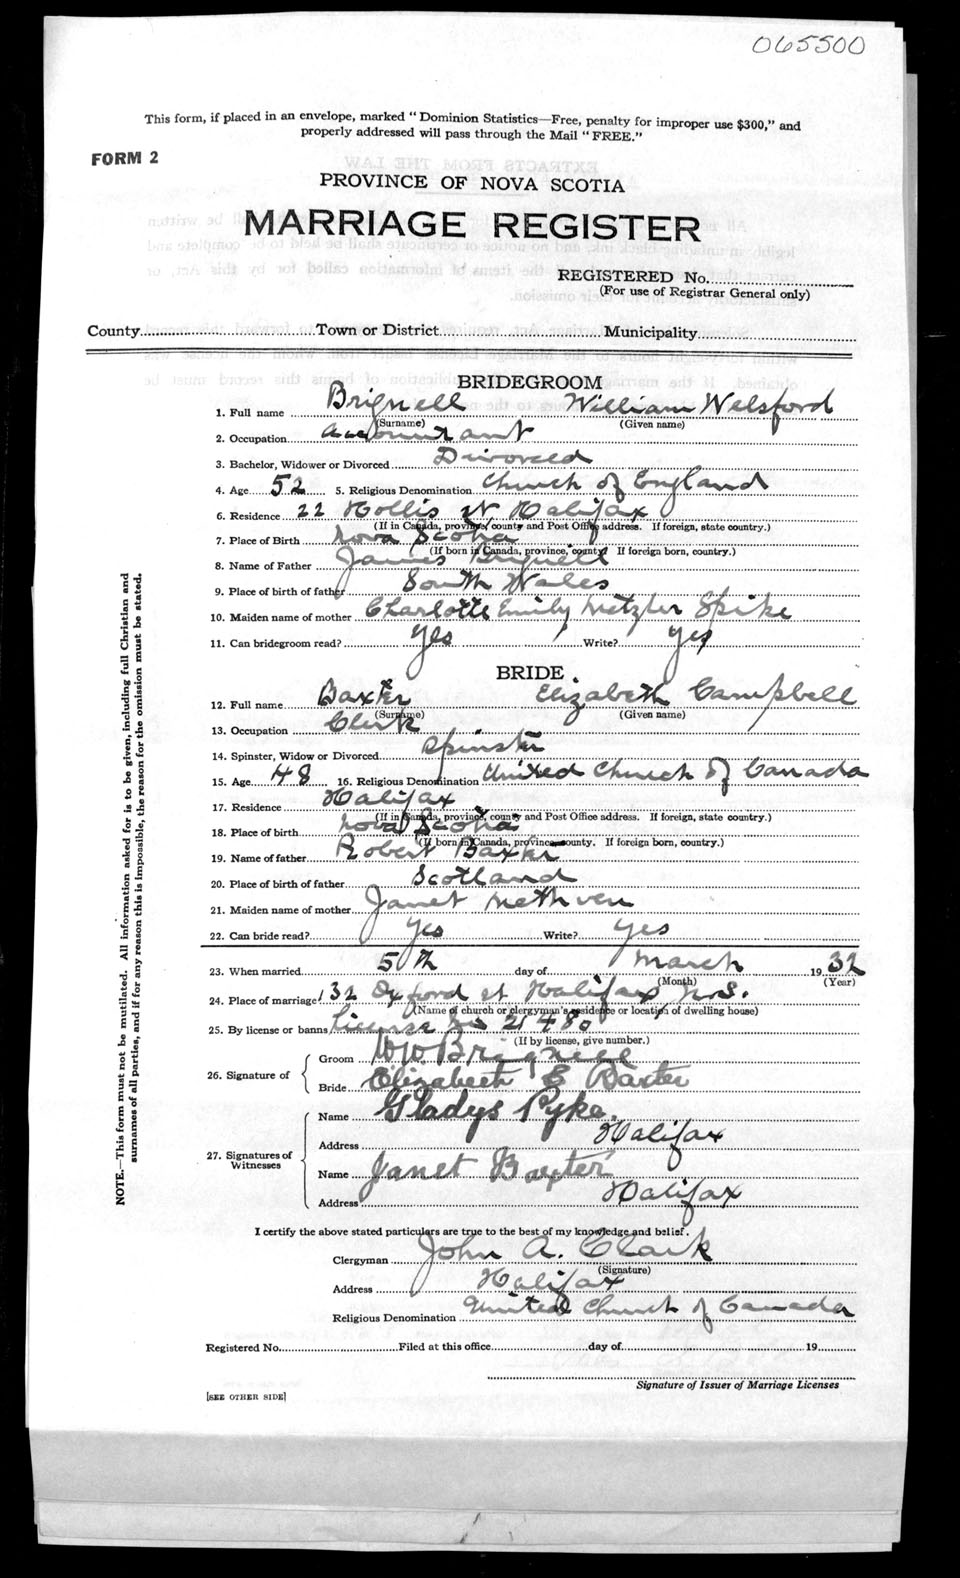 065500
This form, if placed in an envelope, marked "Dominion Statistics—Free, penalty for improper use $300," and
properly addressed will pass through the Mail "FREE."
FORM 2
PROVINCE OF NOVA SCOTIA
MARRIAGE REGISTER
REGISTERED No.
(For use of Registrar General only)
County Town or District Municipality
BRIDEGROOM
1. Full name Brignell William Welsford
(Surname) (Given name)
2. Occupation Accountant
3. Bachelor, Widower or Divorced Divorced
4. Age 52 5. Religious Denomination Church of England
6. Residence 22 Hollis st Halifax
(If in Canada, province, county and Post Office address. If foreign, state country.)
7. Place of Birth Nova Scotia
(If born in Canada, province, county. If foreign born, country.)
8. Name of Father James Brignell
9. Place of birth of father South Wales
10. Maiden name of mother Charlotte Emily Metzler Spike
11. Can bridegroom read? Yes Write? Yes
BRIDE
12. Full name Baxter Elizabeth Campbell
(Surname) (Given name)
13. Occupation Clerk
14. Spinster, Widow or Divorced Spinster
15. Age 48 16. Religious Denomination United Church of Canada
17. Residence Halifax
(If in Canada, province, county and Post Office address. If foreign, state country.)
18. Place of birth Nova Scotia
(If born in Canada, province, county. If foreign born, country.)
19. Name of father Robert Baxter
20. Place of birth of father Scotland
21. Maiden name of mother Janet Methven
22. Can bride read? Yes Write? Yes
23. When married 5th day of March 1932
(Month) (Year)
24. Place of marriage 132 Oxford st Halifax, N.S.
(Name of church or clergyman's residence or location of dwelling house)
25. By license or banns License No 21480
(If by license, give number.)
26. Signature of Groom W W Brignell
Bride Elizabeth C Baxter
27. Signatures of Witnesses Name Gladys Pyke.
Address Halifax
Name Janet Baxter
Address Halifax
I certify the above stated particulars are true to the best of my knowledge and belief.
Clergyman John A. Clark
(Signature)
Address Halifax
Religious Denomination United Church of Canada
Registered No. Filed at this office day of 19
Signature of Issuer of Marriage Licenses
[SEE OTHER SIDE]
NOTE.—This form must not be mutilated. All information asked for is to be given, including full Christian and
surnames of all parties, and if for any reason this is impossible, the reason for the omission must be stated.